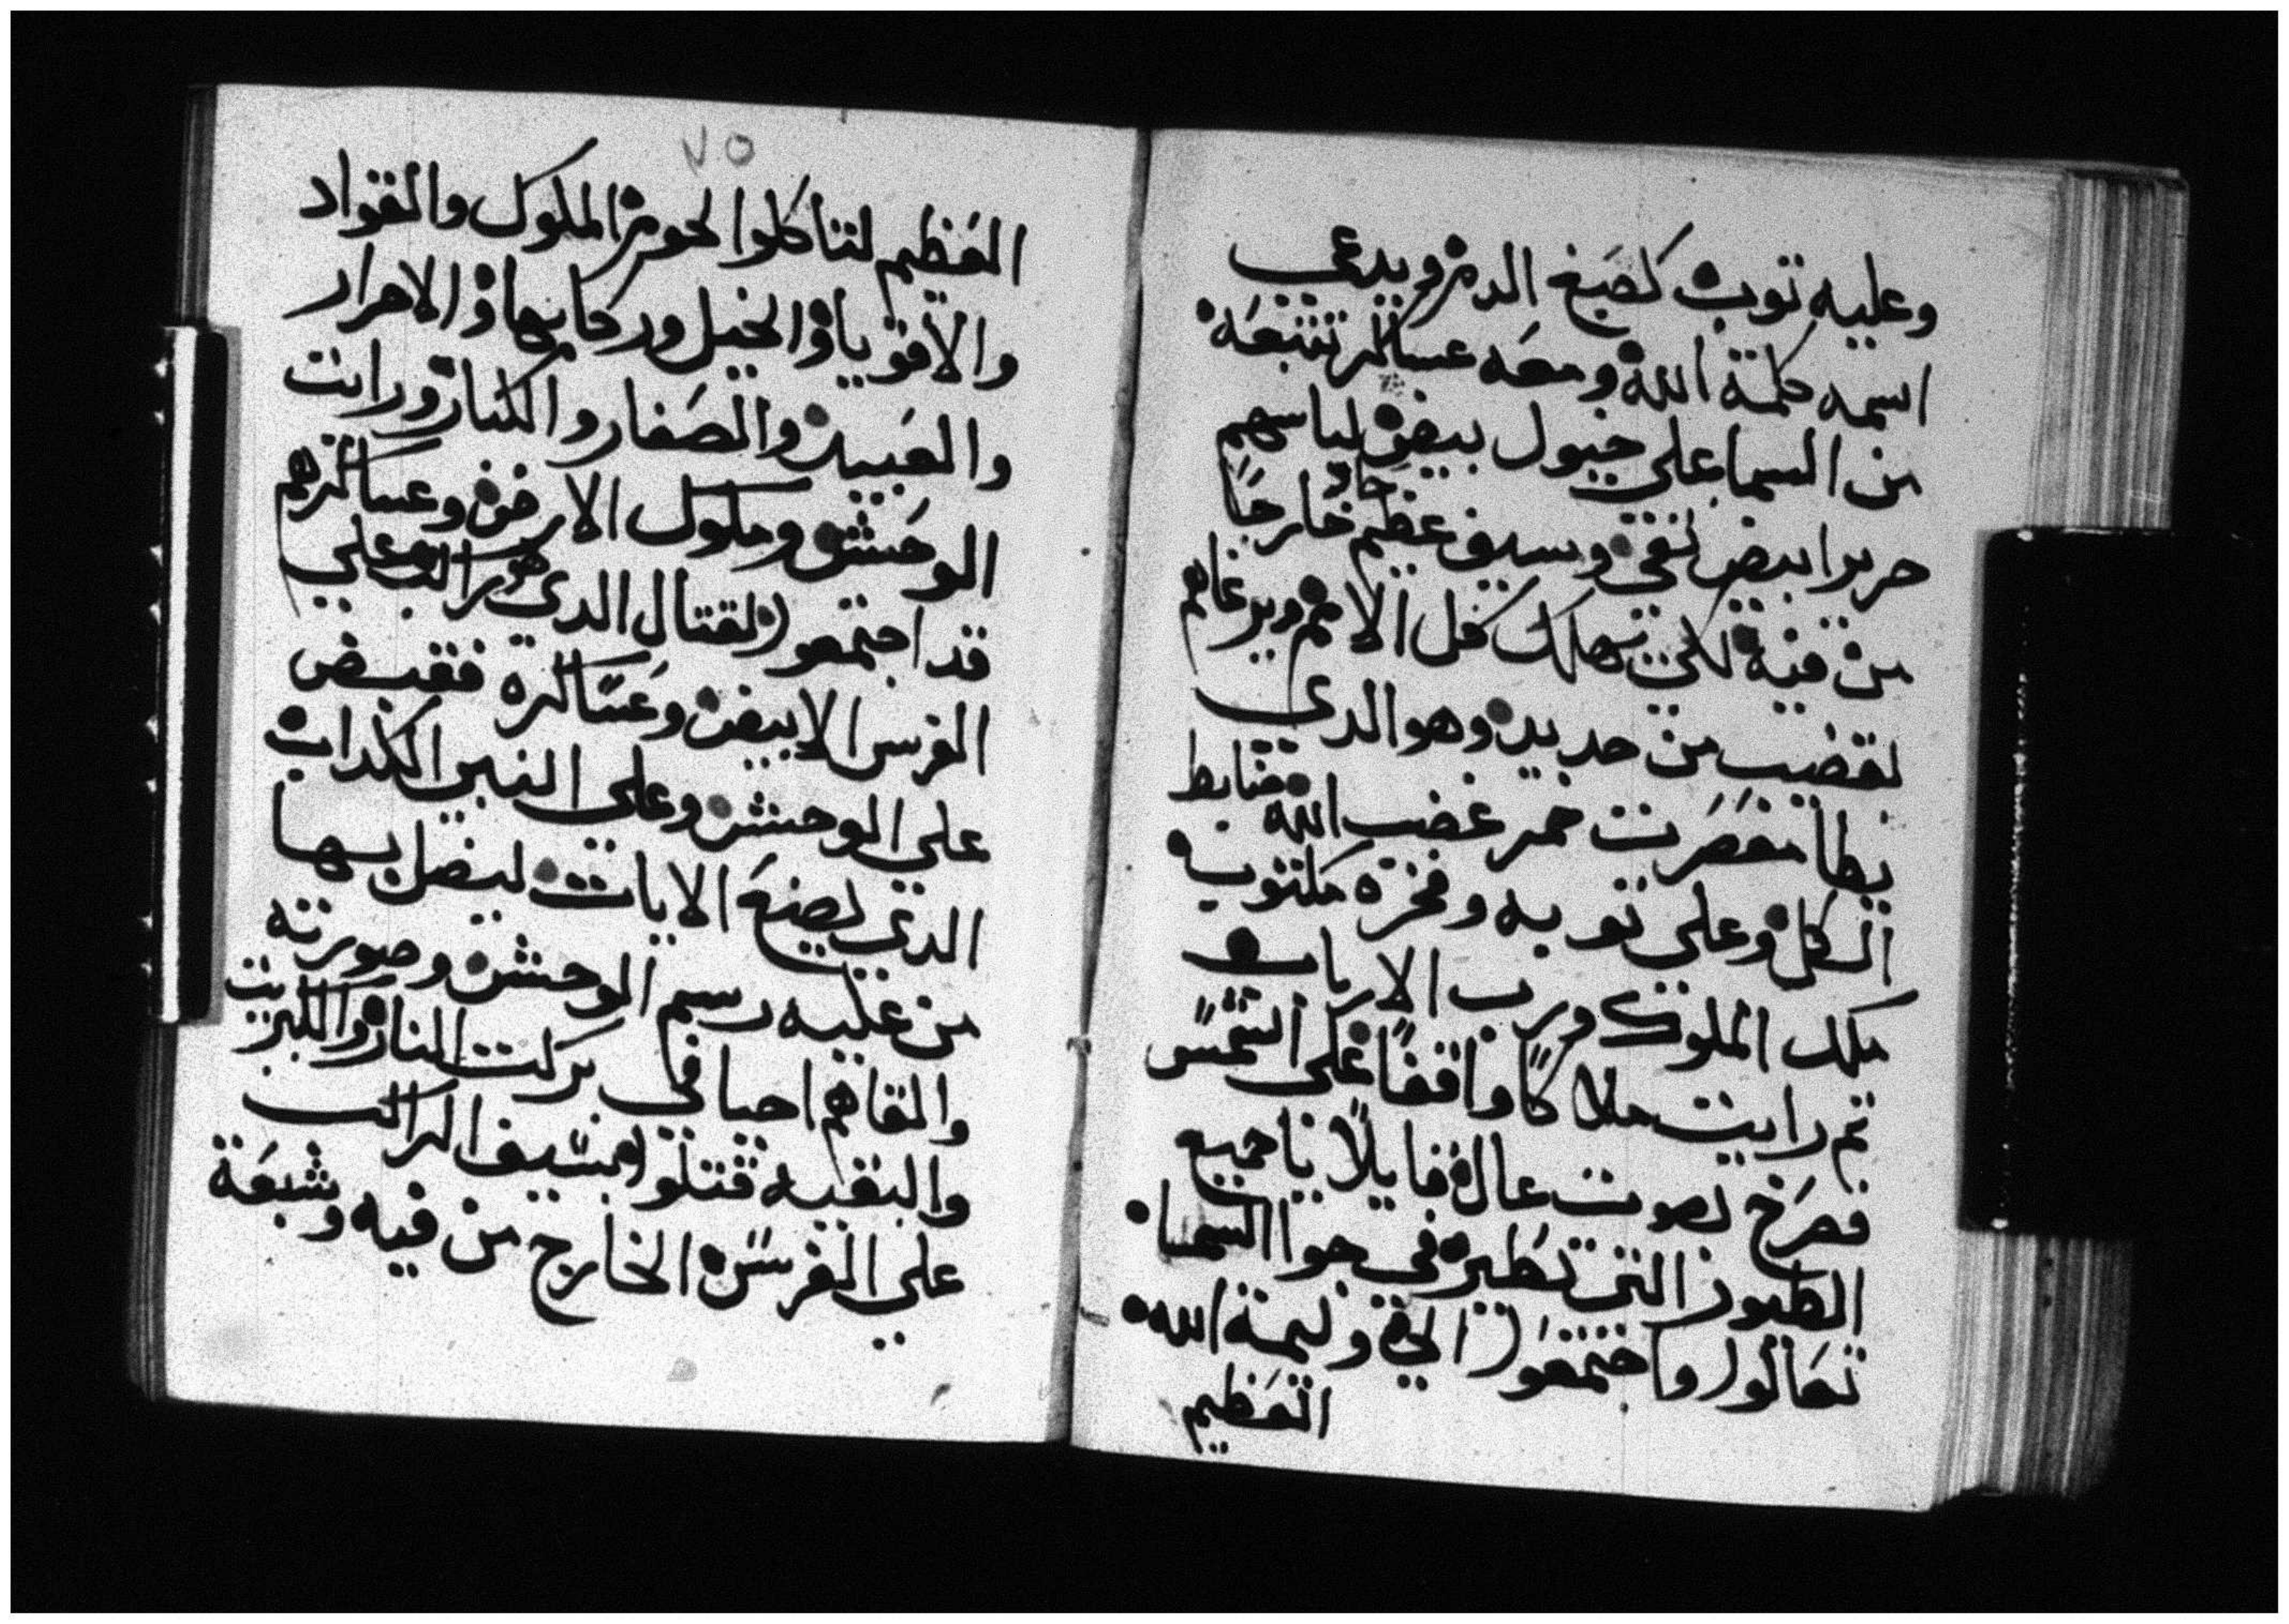 وعليه توب كصبغ الدم ويدعي
اسمه كلمة الله ومعه عساكر تتبعه
من السما على خيول بيض لباسهم
حريرا ابيض نقي وسيف عظيم حاد خارجا
من فيه لكي يهلك كل الامم ويرعاهم
بقضيب من حديد وهو الدي
يطا معصرت خمر غضب الله ضابط
الكل وعلى توبه وفخره مكتوب
ملك الملوك ورب الارباب
تم رايت ملاكا واقفا على الشمس
فصرخ بصوت عال قايلا يا جميع
الطيور التي تطير في جوا السما
تعالوا واجتمعوا الى وليمة الله
العظيم
٧٥
العظيم لتاكلوا لحوم الملوك والقواد
والاقويا والخيل وركابها والاحرار
والعبيد والصغار والكبار ورايت
الوحش وملوك الارض وعساكرهم
قد اجتمعوا لقتال الدي هو راكب على
الفرس الابيض وعساكره فقبض
على الوحش وعلى النبي الكداب
الدي يصنع الايات ليضل بها
من عليه رسم الوحش وصورته
والقاهم احيا في بركت النار والكبريت
والبقيه قتلوا بسيف الراكب
على الفرس الخارج من فيه وشبعة